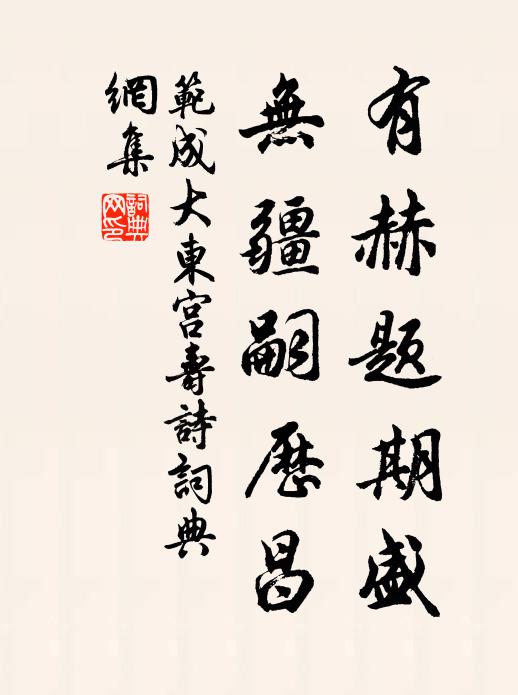 有赫題期盛
無疆嗣歷昌
範成大東宮壽詩詞典
網集
詞典
网印